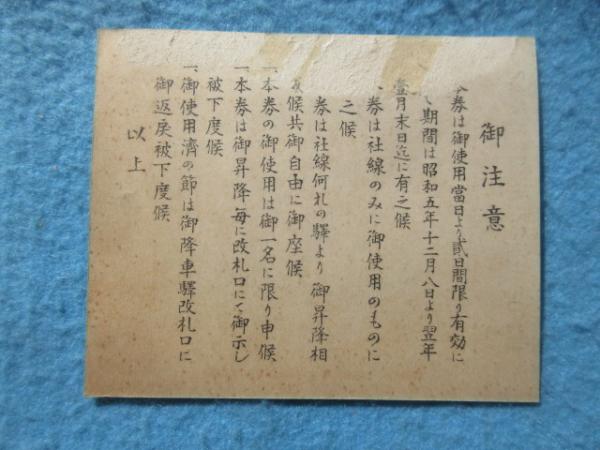 御注意
本券は御使用當日より貳日間限り有効に
期間は昭和五年十二月八日より翌年
壹月末日迄に有之候
券は社線のみに御使用のものに
之候
券は社線何れの驛より御昇降相
候共御自由に御座候
一、本券の御使用は御一名に限り申候
一、本券は御昇降每に改札口にて御示し
被下度候
一、御使用濟の節は御降車驛改札口に
御返戾被下度候
以上